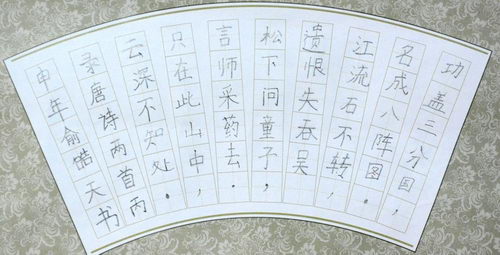 功盖三分国，
名成八阵图。
江流石不转，
遗恨失吞吴
松下问童子，
言师采药去。
只在此山中，
云深不知处。
录唐诗两首丙
申年俞皓天书